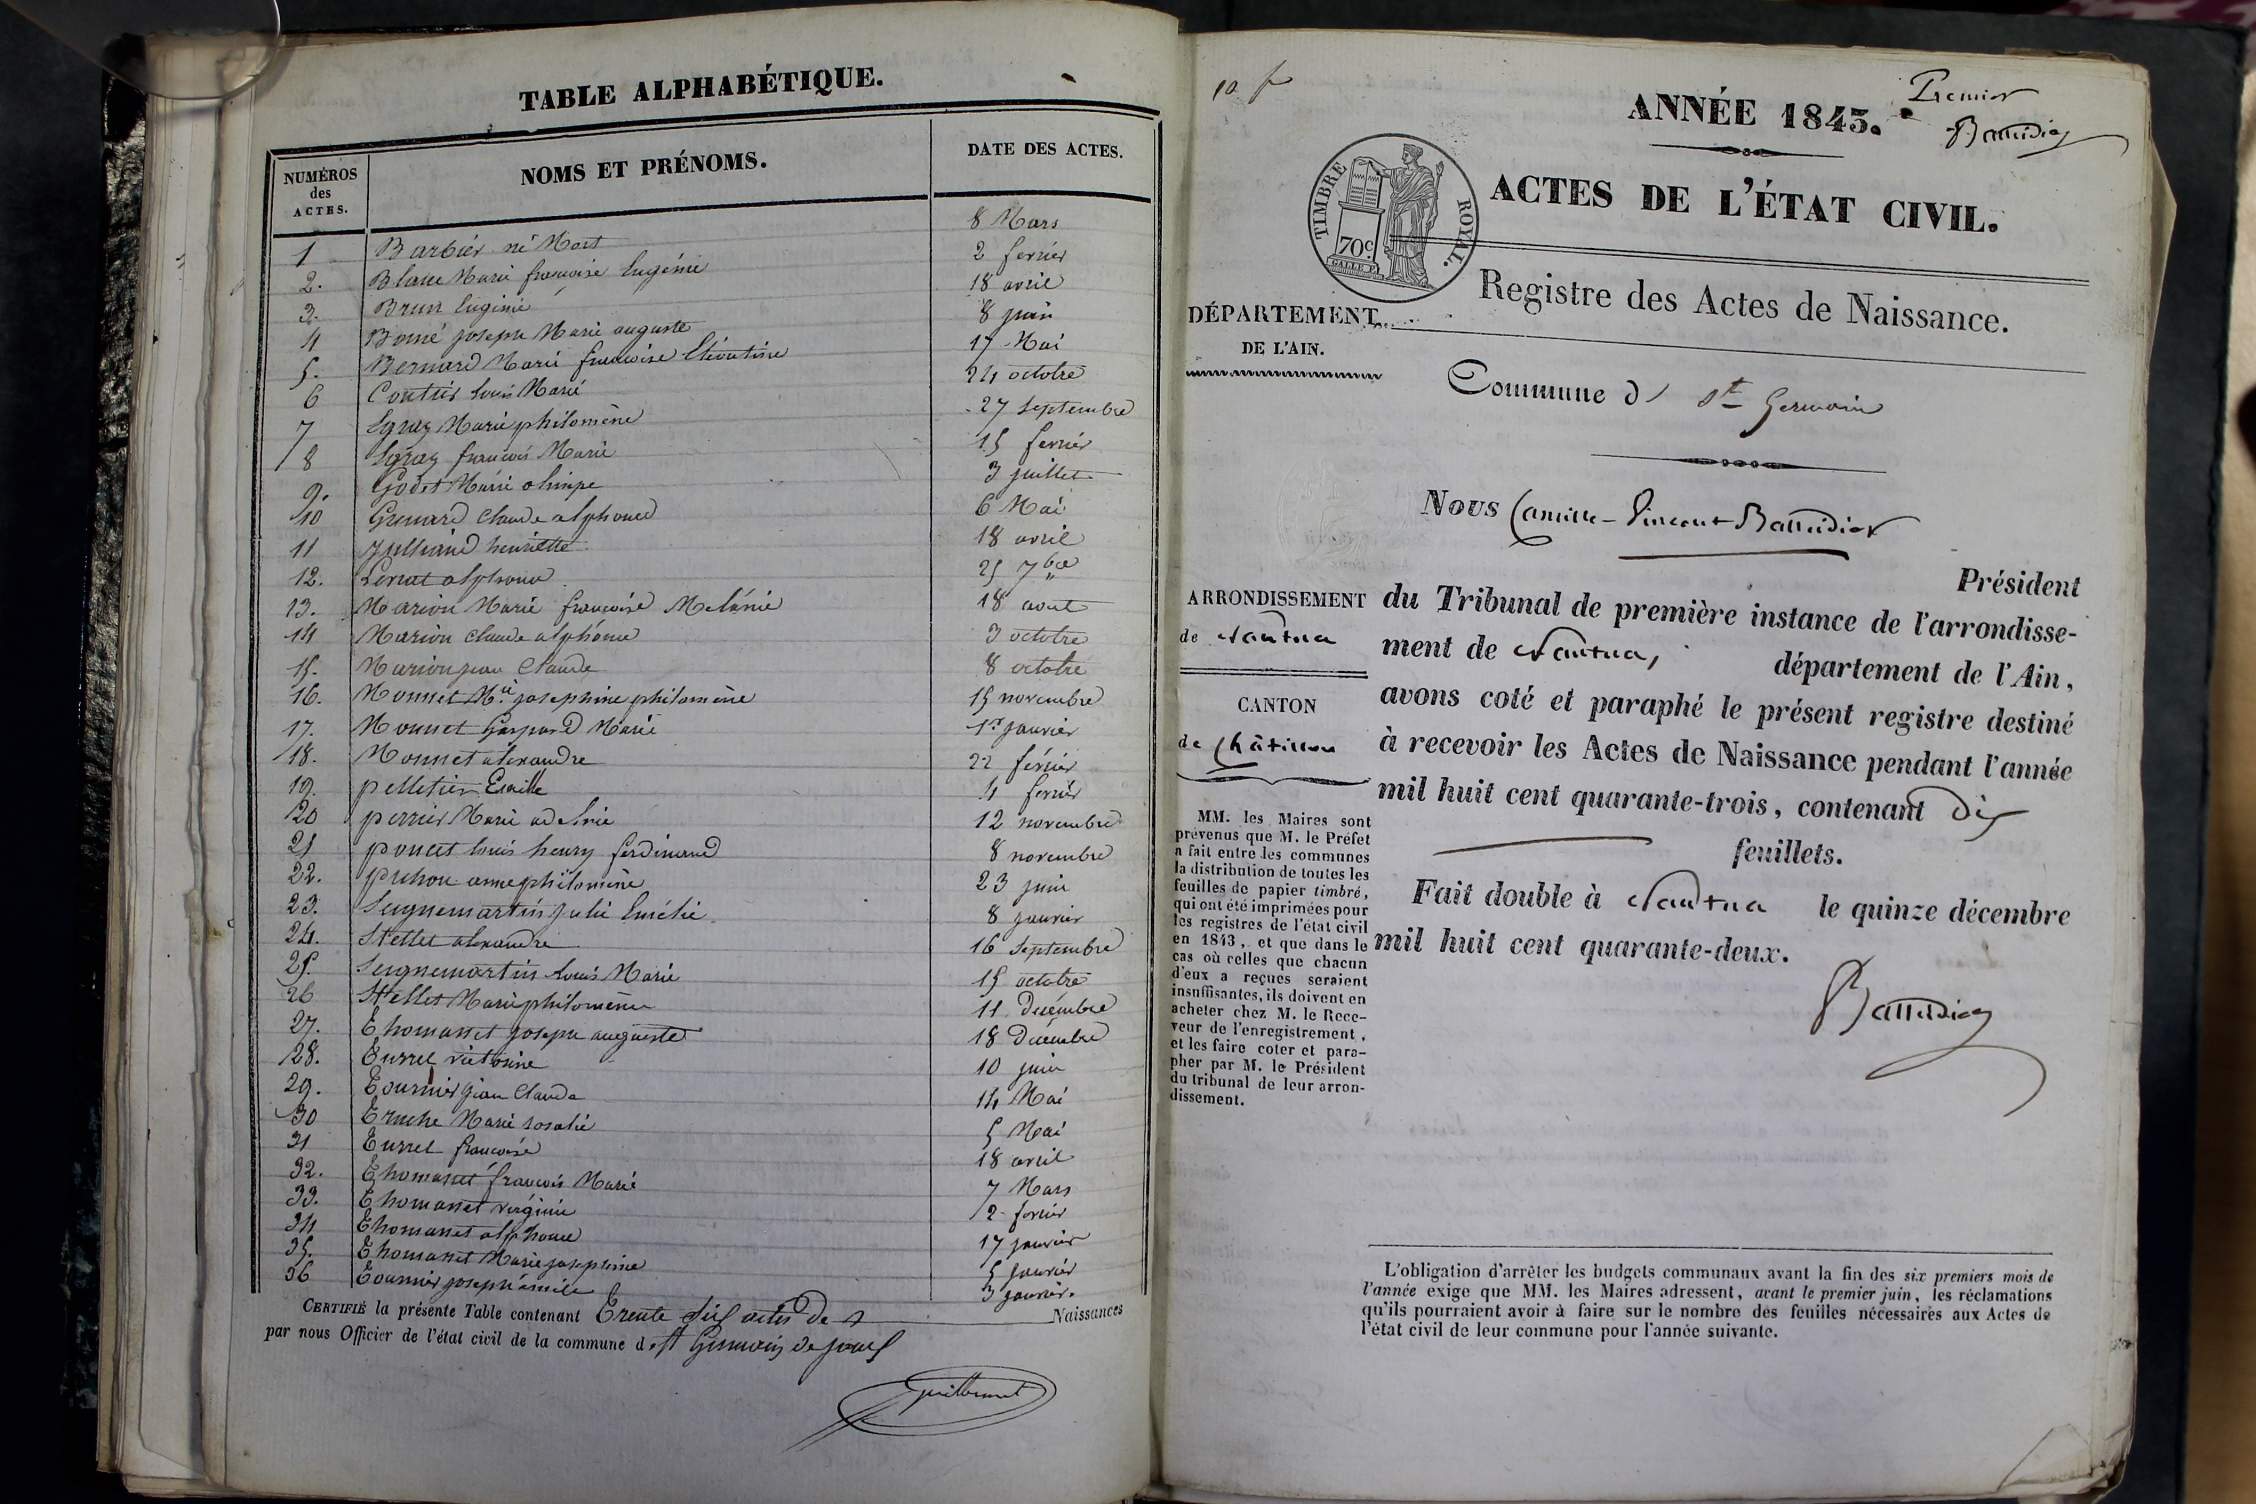 TABLE ALPHABÉTIQUE.
NUMÉROS des ACTES. NOMS ET PRÉNOMS. DATE DES ACTES.
1 Barbier né Mort 8 Mars
2. Blanc Marie françoise Eugénie 2 fevrier
3. Brun Eugénie 18 avril
4 joseph Marie auguste 8 juin
5. Bernard Marie françoise 17 Mai
6 Louis Marie 24 octobre
7 Egraz Marie philomène 27 septembre
8 Egraz françois Marie 15 fevrier
9. Godet Marie olimpe 3 juillet
10 Grenard claude alphonse 6 Mai
11 Julliand henriette 18 avril
12. alphonse 25 7bre
13. Marion Marie françoise Melánie 18 aout
14 Marion claude alphonse 3 octobre
15. Marion jean claude 8 octobre
16. Monnet Mie josephine philomène 15 novembre
17. Monnet Gaspard Marie 1er janvier
18. Monnet alexandre 22 février
19. pelletier Emille 4 fevrier
20 perrier Marie adeline 12 novembre
21 poncet louis henry ferdinand 8 novembre
22. anne philomène 23 juin
23. Seignemartin julie Emélie 8 janvier
24. Stellet alexandre 16 septembre
25. Seignemartin Louis Marie 15 octobre
26 Stellet Marie philomène 11 Decémbre
27. Thomasset joseph auguste 18 Decémbre
28. Turrel victorine 10 juin
29. Tournier jean claude 14 Mai
30 Truche Marie rosalie 5 Mai
31 Turrel françoise 18 avril
32. Thomasset françois Marie 7 Mars
33. Thomasset virginie 2 fevrier
34 Thomasset alphonse 17 janvier
35. Thomasset Marie josephine 5 janvier
36 Tournier joseph émile 3 janvier.
CERTIFIÉ la présente Table contenant Trente six actes de Naissances
par nous Officier de l'état civil de la commune d. St Germain de joux
10 f
Premier
ANNÉE 1843.
Battudier
TIMBRE ROYAL.
70c
GALLE F.
ACTES DE L'ÉTAT CIVIL.
Registre des Actes de Naissance.
DÉPARTEMENT
DE L'AIN.
Commune d St Germain
Nous Camille-Vincent Battudier
Président
ARRONDISSEMENT
de Nantua
CANTON
de Châtillon
MM. les Maires sont
prévenus que M. le Préfet
a fait entre les communes
la distribution de toutes les
feuilles de papier timbré,
qui ont été imprimées pour
les registres de l'état civil
en 1843, et que dans le
cas où celles que chacun
d'eux a reçues seraient
insuffisantes, ils doivent en
acheter chez M. le Rece-
veur de l'enregistrement,
et les faire coter et para-
pher par M. le Président
du tribunal de leur arron-
dissement.
du Tribunal de première instance de l'arrondisse-
ment de Nantua, département de l'Ain,
avons coté et paraphé le présent registre destiné
à recevoir les Actes de Naissance pendant l'année
mil huit cent quarante-trois, contenant dix
feuillets.
Fait double à Nantua le quinze décembre
mil huit cent quarante-deux.
Battudier
L'obligation d'arrêter les budgets communaux avant la fin des six premiers mois de
l'année exige que MM. les Maires adressent, avant le premier juin, les réclamations
qu'ils pourraient avoir à faire sur le nombre des feuilles nécessaires aux Actes de
l'état civil de leur commune pour l'année suivante.